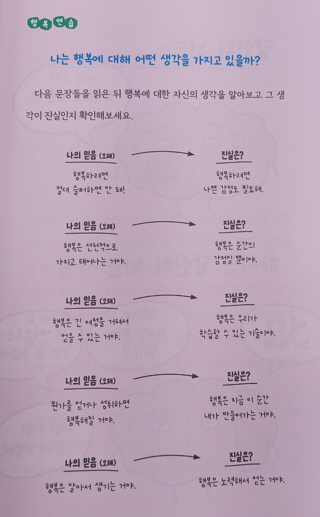 행복연습
나는 행복에 대해 어떤 생각을 가지고 있을까?
다음 문장들을 읽은 뒤 행복에 대한 자신의 생각을 알아보고 그 생
각이 진실인지 확인해보세요.
나의 믿음 (오해)
진실은?
행복하려면
절대 슬퍼하면 안 돼!
행복하려면
나쁜 감정도 필요해.
나의 믿음 (오해)
진실은?
행복은 선천적으로
가지고 태어나는 거야.
행복은 순간의
감정일 뿐이야.
나의 믿음 (오해)
진실은?
행복은 긴 여정을 거쳐서
얻을 수 있는 거야.
행복은 우리가
학습할 수 있는 기술이야.
나의 믿음 (오해)
진실은?
뭔가를 얻거나 성취하면
행복해질 거야.
행복은 지금 이 순간
내가 만들어가는 거야.
나의 믿음 (오해)
진실은?
행복은 알아서 생기는 거야.
행복은 노력해서 얻는 거야.